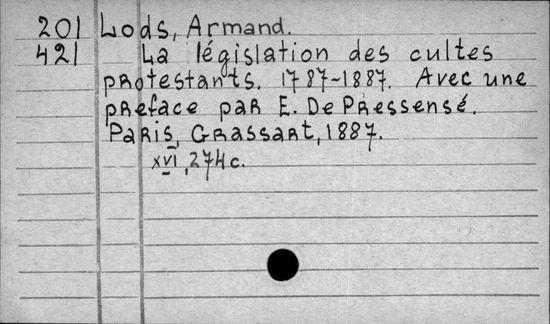 201 Lods, Armand.
421 La législation des cultes
protestants. 1787-1887. Avec une
preface par E. De Pressensé.
Paris, Grassart, 1887.
xvi, 274 c.